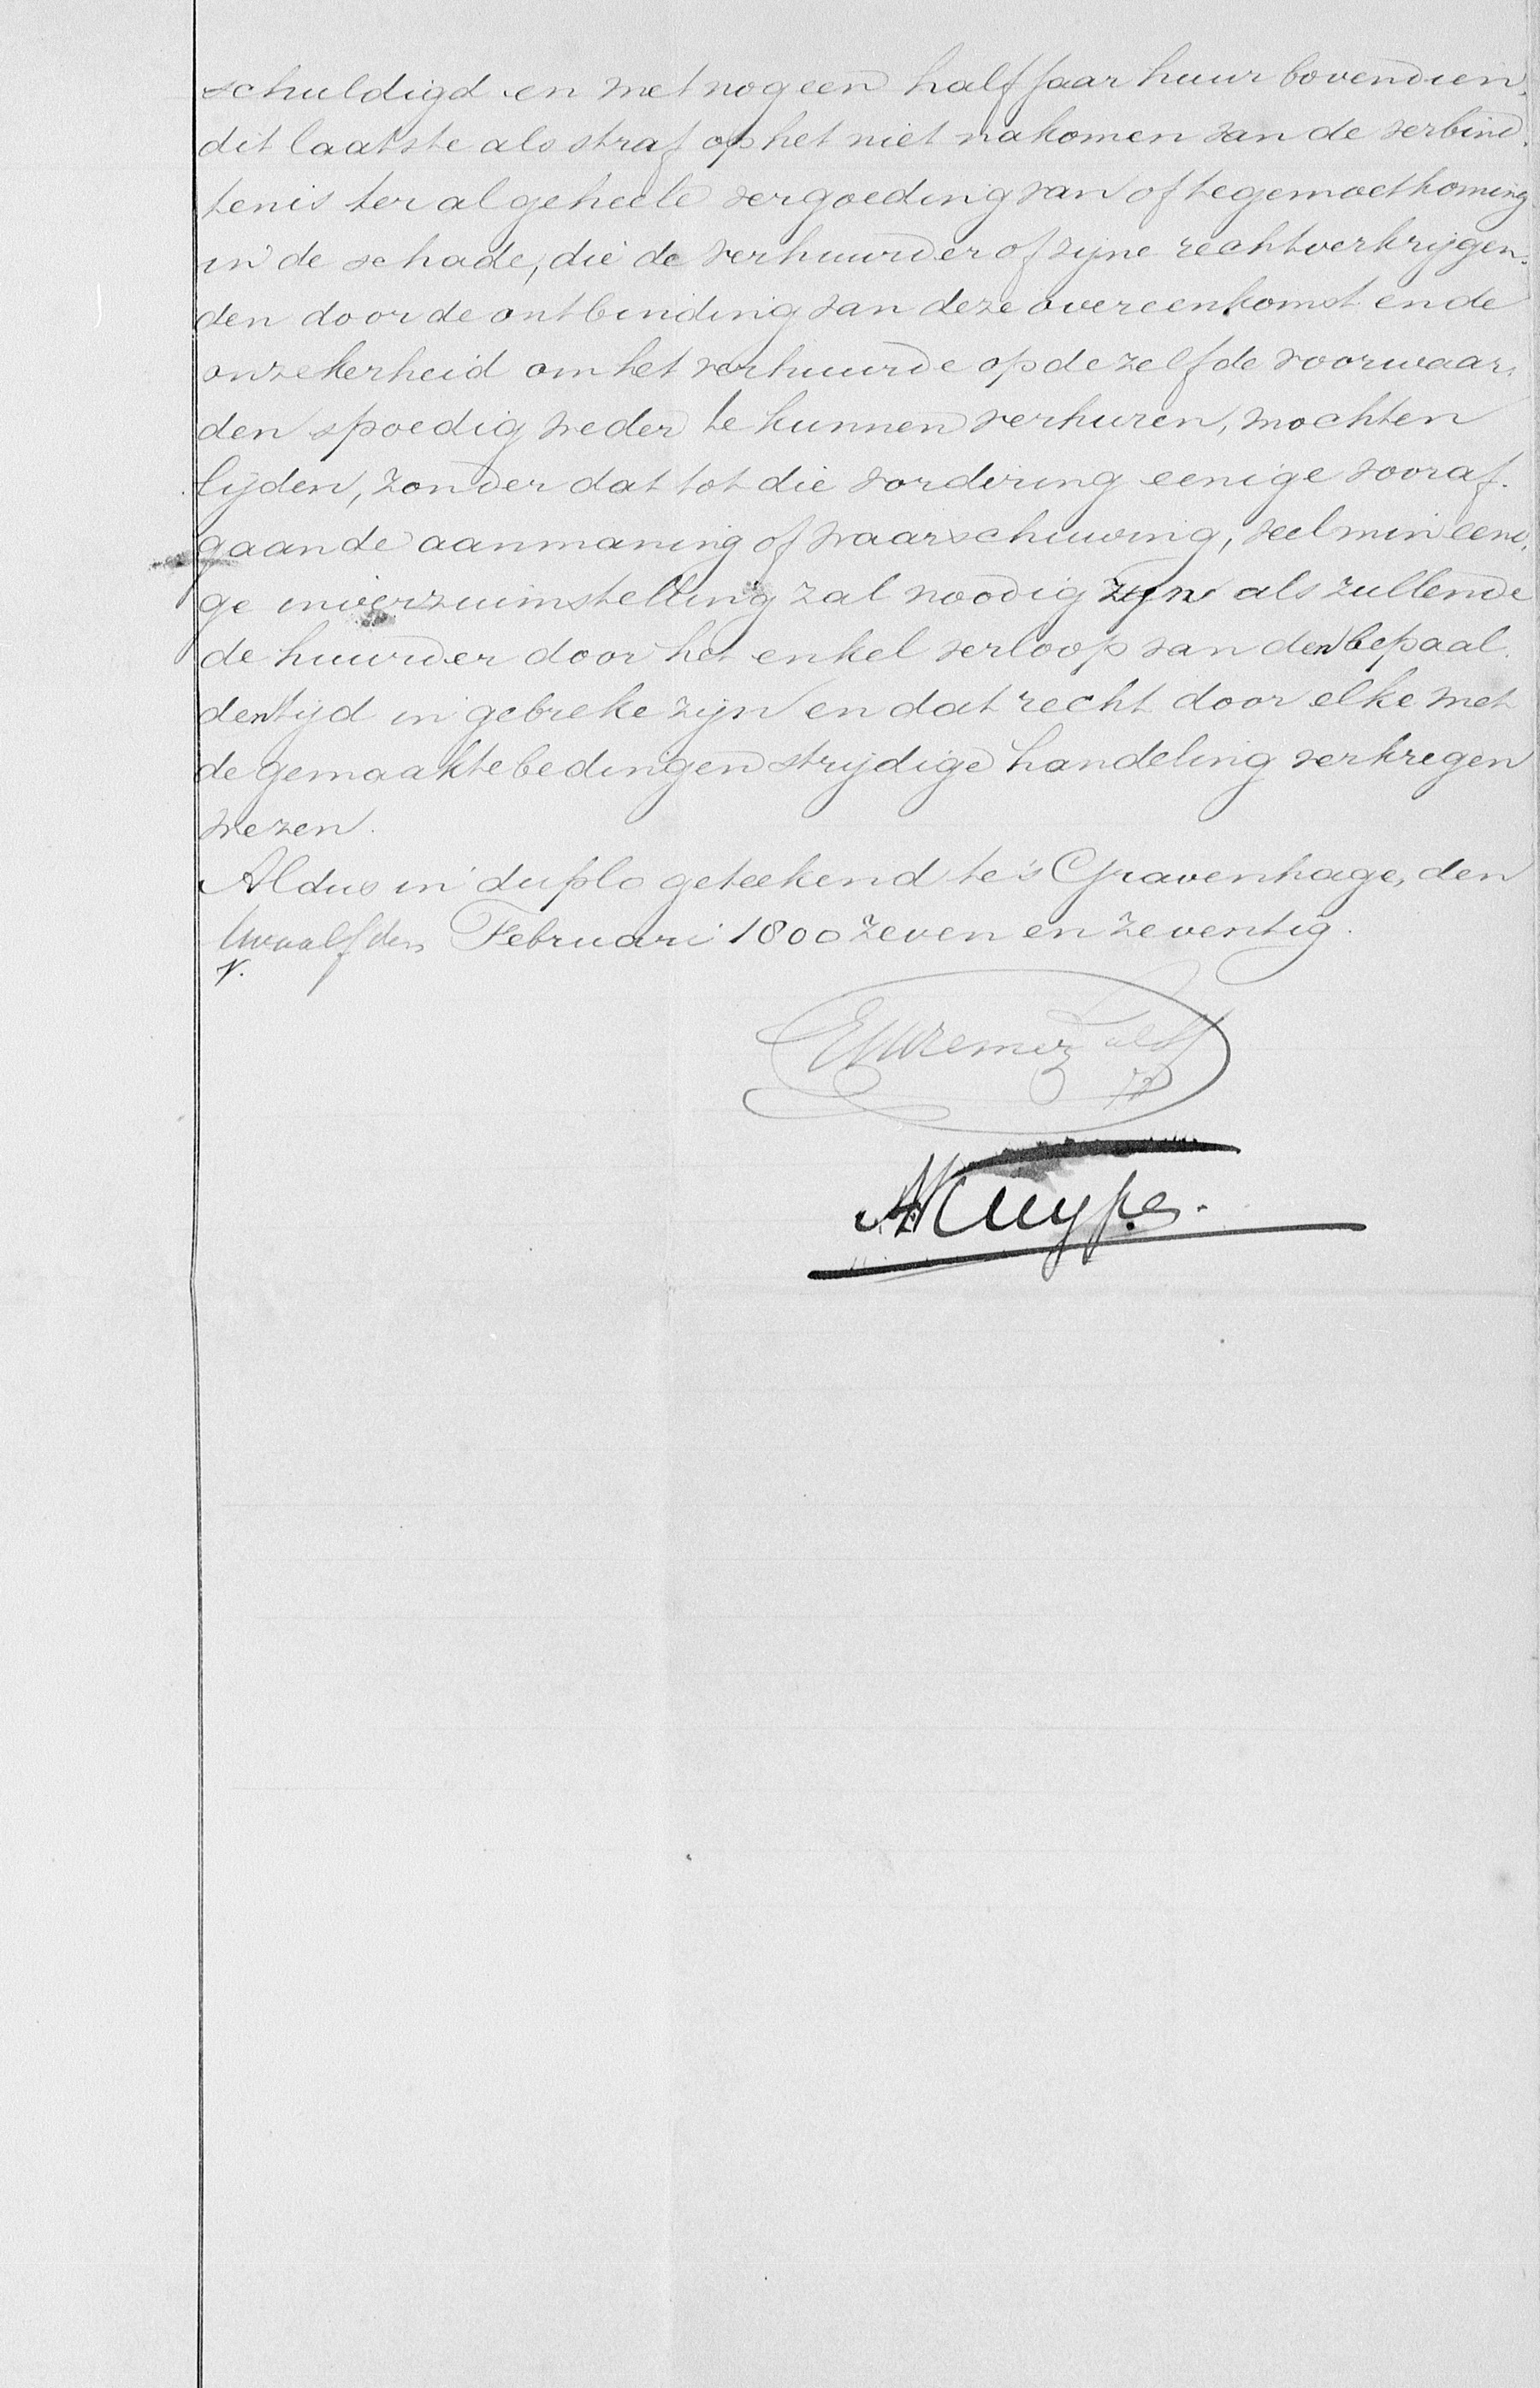 schuldigd en met nog een half jaar huur bovendien,
dit laatste als straf op het niet nakomen van de verbind.
tenis ter algeheele vergoeding van of tegemoetkoming
in de schade, die de verhuurder of zijne rechtverkrijgen.
den door de ontbinding van deze overeenkomst en de
onzekerheid om het verhuurde op dezelfde voorwaar.
den spoedig weder te kunnen verhuren, mochten
lijden, zonder dat tot die vordering eenige vooraf.
gaande aanmaning of waarschuwing, veel min eeni.
ge inverzuimstelling zal noodig zijn als zullende
de huurder door het enkel verloop van den bepaal.
den tijd in gebreke zijn en dat recht door elke met
de gemaakte bedingen strijdige handeling verkregen
wezen.
Aldus in duplo geteekend te 's Gravenhage, den
twaalfden Februari 1800 zeven en zeventig.
AKuyper.